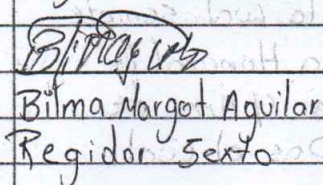 Bilma Margot Aguilar
Regidor Sexto